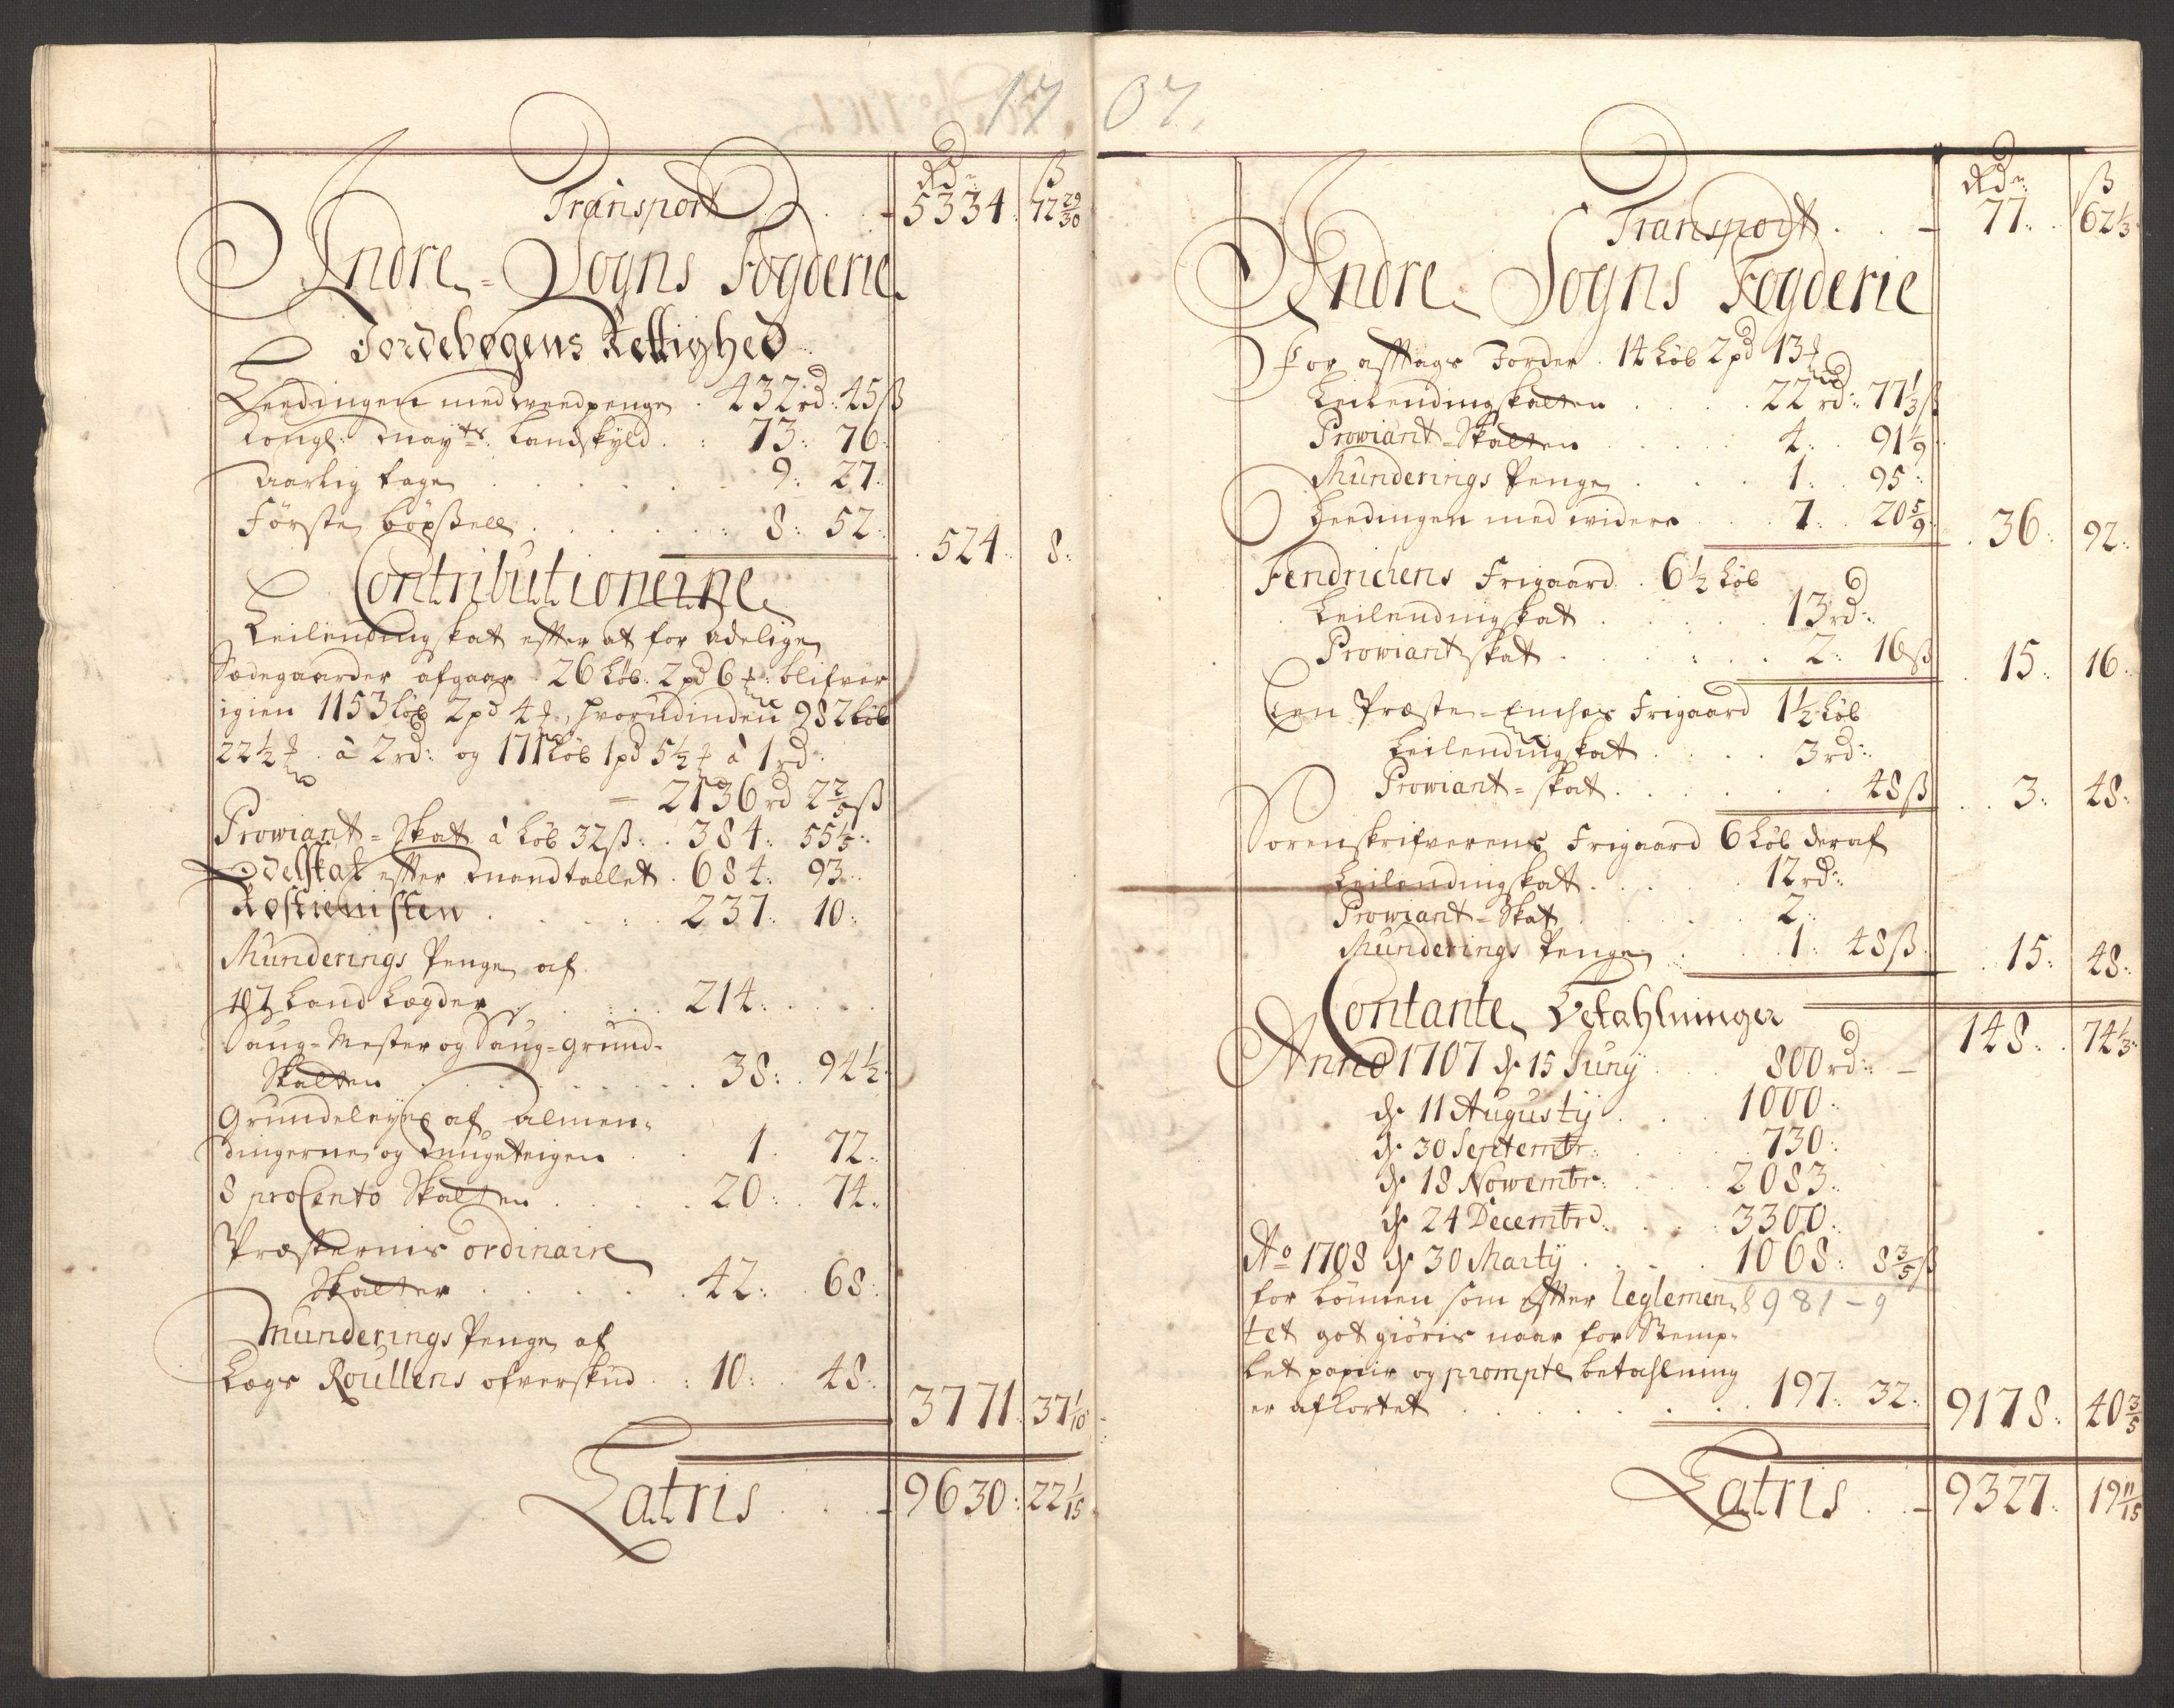 17
Rdr. ß
Transport . . - 5334: 72 29/30
Indre-Sogns Fogderie
Jordebogens Rettighed
Leedingen med weedpenge . 432 rd: 45 ß
Kongl: Mayts: Landskyld . : 73: 76:
Aarlig tage . . . . 9: 27.
Første böxßell . . . . 8: 52: 524: 8:
Contributionerne
Leilendingskat efter at for adelige
Sædegaarder afgaar 26 løb. 2 pd 6 blifver
igien 1153 løb 2 pd 4, hvorudinden 982 løb
22½ . à 2 rd: og 171 løb 1 pd 5½ à 1 rd:
= 2136 rd 2 2/5 ß
Prowiant-Skat à løb 32 ß: . 384: 55 1/5:
Odelskat efter Mandtallet . 684: 93:
Rostienisten . . . 237: 10:
Munderings Penge af
107 Land Lægder . . 214: . . .
Saug-Mester og Saug-grund-
Skatten . . . . 38: 94½:
Grundeleyne af almen-
dingerne og Knugeteigen . . 1. 72:
8 proCento Skatten . . . 20: 74:
Præsternis ordinaire
Skatter . . . . 42: 68:
Munderings Penge af
Lægs Roullens ofverskud . : 10: 48: 3771: 37 1/10
Latris . . - 9630: 22 1/15
07.
Rdr: ß
Transport . . - 77: . 62 1/3
Indre Sogns Fogderie
For afftags Jorder . 14 løb 2 pd 13
Leilendingskatten . . . 22 rd: 77 1/3 ß
Prowiant-Skatten 4: . 91 1/9
Munderings Penge . . 1: . 95:
Leedingen med widere . . 7: . 20 5/9 . 36: 92:
Fendrichens Frigaard . 6½ løb
Leilendingskat . . . 13 rd:
Prowiantskat . . . . 2: 16 ß 15: 16:
Een Præste-Enches Frigaard 1½ løb
Leilendingskat . . . 3 rd:
Prowiant-skat . . . . 48 ß . 3: 48:
Sorenskrifverens Frigaard 6 løb deraf
Leilendingskat . . . 12 rd:
Prowiant-Skat . . . 2:
Munderings Penge . . 1: 48 ß . 15: 48:
Contante Betahlninger
148: . 74 1/3
Anno 1707 d. 15 Junij . 800 rd: -
d. 11 Augustij . . 1000:
d. 30 Septembr: . . 730:
d. 18 Nowembr: . . 2083:
d. 24 Decembr. . . 3300:
Ao 1708 d. 30 Martij . . . 1068: 8 3/5 ß
for lönnen som efter Reglemen- 8981 - 9
tet got giöris naar for Stemp-
let papiir og prompte betahlning
er afkortet . . . . . 197: 32: 9178: 40 3/5
Latris . . - 9327: 19 11/15